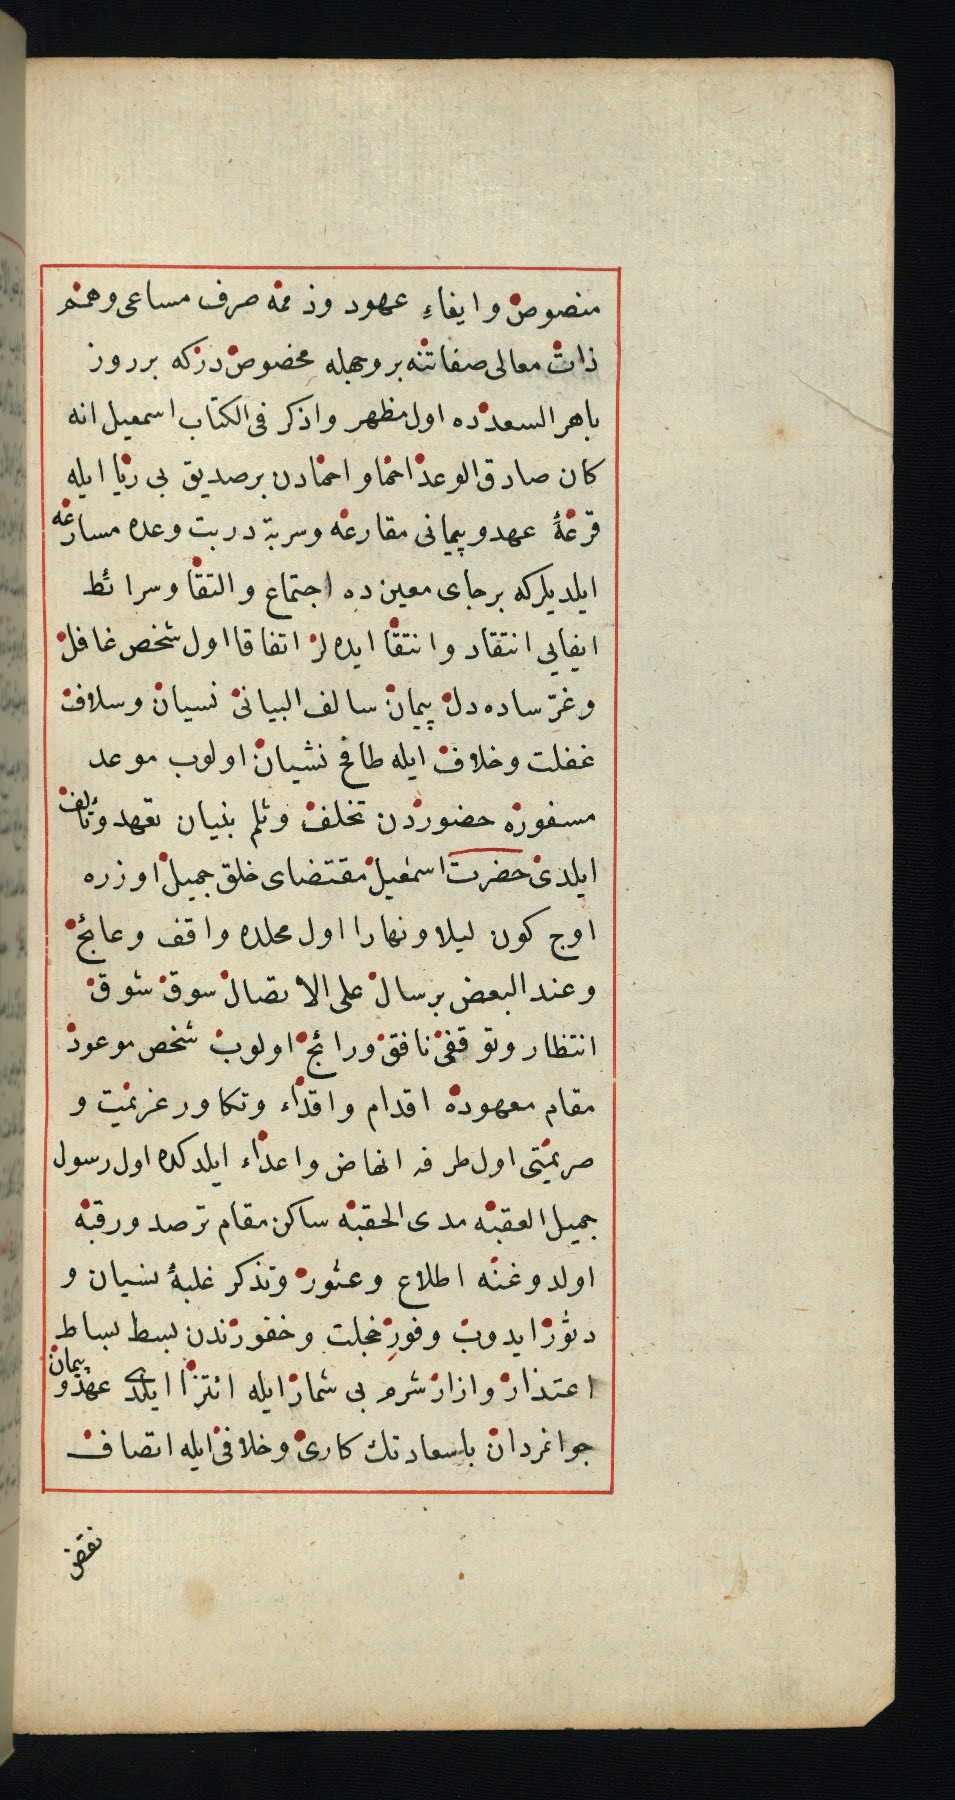 منصوص و ایفاء عهود و ذممه صرف مساعی و همم
ذات معالی صفاتنه بر وجهله مخصوص درکه بر روز
باهر السعدده اول مظهر واذكر فی الكتاب اسمعیل انه
كان صادق الوعد اخا و اخادن بر صدیق بی ریا ایله
قرعهٔ عهد و پیمانی مقارعه و سربهٔ دربت وعده مسارعه
ایلدیلر که بر جای معین ده اجتماع و التقا و شرائط
ایفایی انتقاد و انتقا ایده لر اتفاقا اول شخص غافل
و غرّ ساده دل پیمان سالف البیانی نسیان و سلافت
غفلت و خلاف ایله طافح نشیان اولوب موعد
مسفوره حضوردن تخلف و ثلم بنیان تعهد و تألف
ایلدی حضرت اسمعیل مقتضای خلق جمیل اوزره
اوج کون لیلا و نهارا اول محلده واقف و عائج
و عند البعض بر سال علی الاتصال سوق شوق
انتظار و توقفی نافق و رائج اولوب شخص موعود
مقام معهوده اقدام و اقذاء و تکاور عزیمت و
صریمتی اول طرفه انهاض و اعذاء ایلدکده اول رسول
جمیل العقبه مدی الحقبه ساکن مقام ترصد و رقبه
اولدوغنه اطلاع و عثور و تذکر غلبهٔ نسیان و
دثور ایدوب وفور خجلت و خفورندن بسط بساط
اعتذار و ازار شرم بی شمار ایله اتزرا ایلدی عهد و پیمان
جوانمردان باسعادتك کاری و خلافی ایله اتصاف
نقض